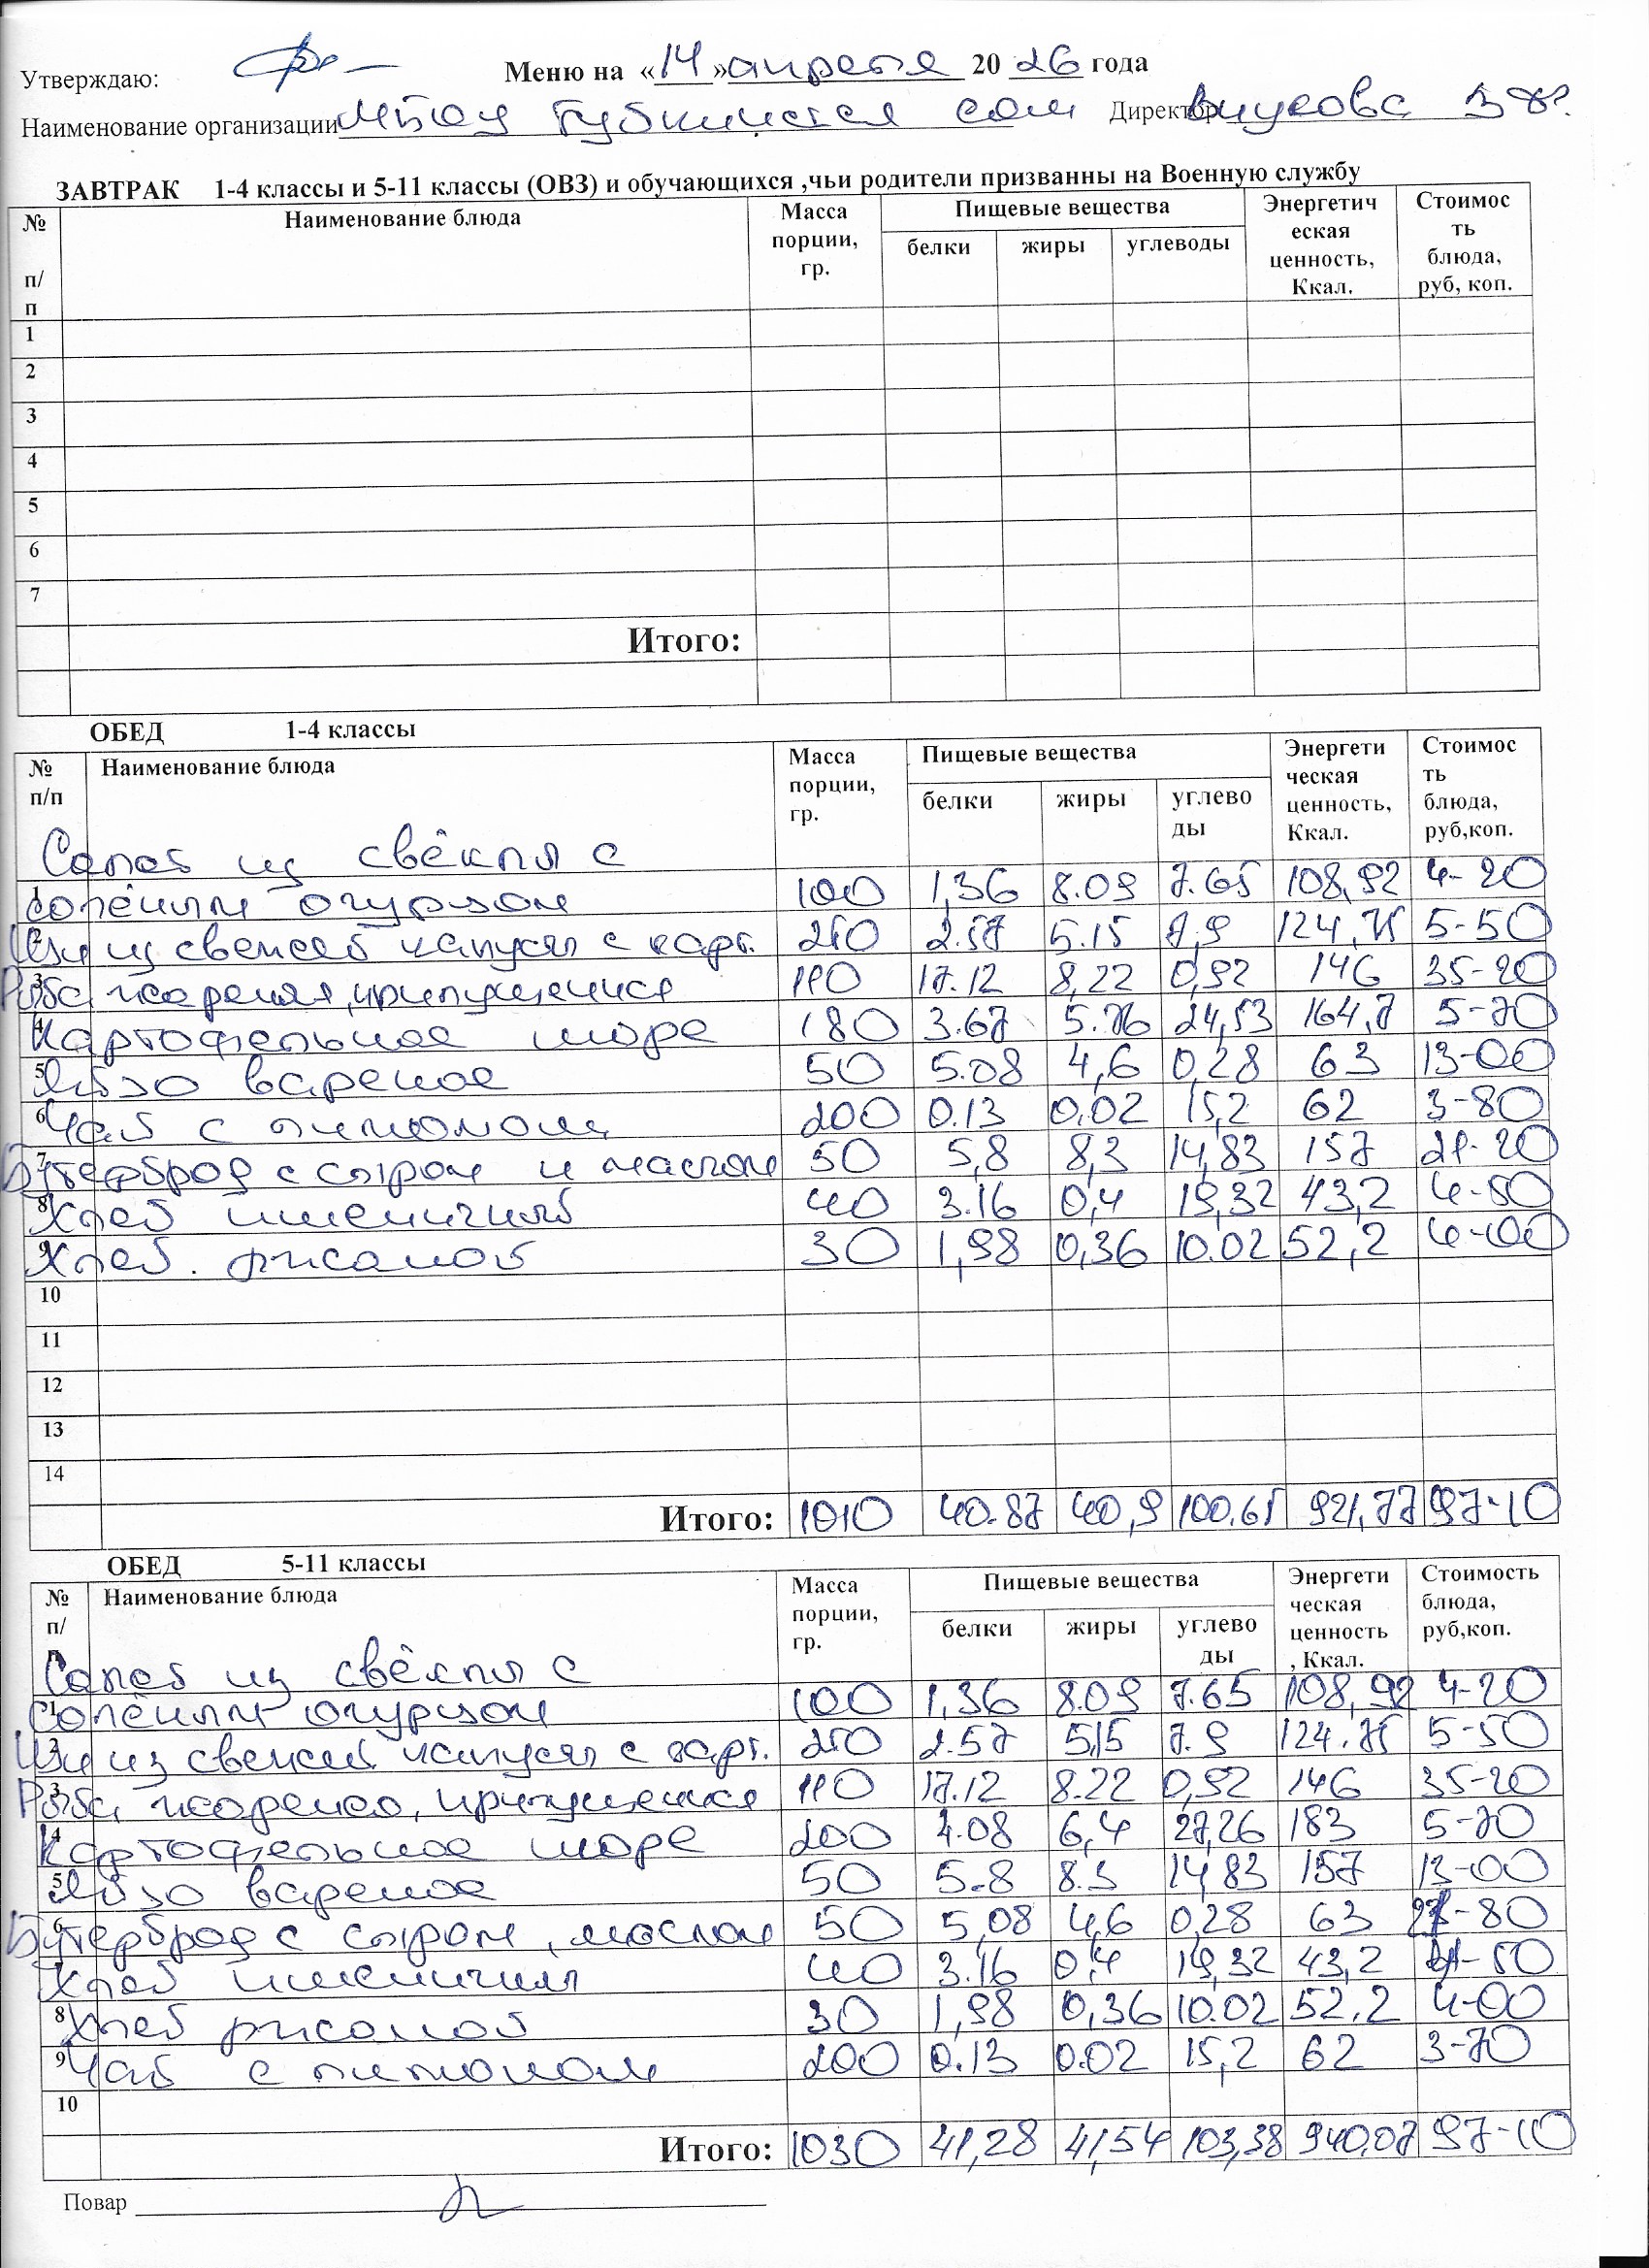 Утверждаю: Меню на «14» апреля 2026 года
Наименование организации МБОУ Губкинская сош Директор Внукова
ЗАВТРАК 1-4 классы и 5-11 классы (ОВЗ) и обучающихся ,чьи родители призванны на Военную службу
№ п/п Наименование блюда Масса порции, гр. Пищевые вещества Энергетическая ценность, Ккал. Стоимость блюда, руб, коп.
белки жиры углеводы
1
2
3
4
5
6
7
Итого:
ОБЕД 1-4 классы
№ п/п Наименование блюда Масса порции, гр. Пищевые вещества Энергетическая ценность, Ккал. Стоимость блюда, руб,коп.
белки жиры углеводы
Салат из свёклы с
1 солёным огурцом 100 1,36 8.09 7.65 108,92 4-20
2 Щи из свежей капусты с карт. 250 2.57 5.15 7,9 124,75 5-50
3 Рыба жареная, припущенная 110 17.12 8,22 0,92 146 35-20
4 Картофельное пюре 180 3.67 5.76 24,53 164,7 5-70
5 Яйцо вареное 50 5.08 4,6 0,28 63 13-00
6 Чай с лимоном 200 0.13 0,02 15,2 62 3-80
7 Бутерброд с сыром и маслом 50 5,8 8,3 14,83 157 21-20
8 Хлеб пшеничный 40 3.16 0,4 19,32 43,2 4-50
9 Хлеб ржаной 30 1,98 0,36 10.02 52,2 4-00
10
11
12
13
14
Итого: 1010 40.87 40,9 100.65 921,77 97-10
ОБЕД 5-11 классы
№ п/п Наименование блюда Масса порции, гр. Пищевые вещества Энергетическая ценность, Ккал. Стоимость блюда, руб,коп.
белки жиры углеводы
Салат из свёклы с
1 солёным огурцом 100 1,36 8.09 7.65 108,92 4-20
2 Щи из свежей капусты с карт. 250 2.57 5,15 7.9 124.75 5-50
3 Рыба жареная, припущенная 110 17.12 8.22 0,92 146 35-20
4 Картофельное пюре 200 4.08 6,4 27,26 183 5-70
5 Яйцо вареное 50 5.8 8.3 14,83 157 13-00
6 Бутерброд с сыром, маслом 50 5,08 4,6 0,28 63
Хлеб пшеничный 40 3.16 0,4 19,32 43,2
8 Хлеб ржаной 30 1,98 0,36 10.02 52.2 4-00
9 Чай с лимоном 200 0.13 0.02 15,2 62 3-70
10
Итого: 1030 41,28 41,54 103,38 940,07 97-10
Повар